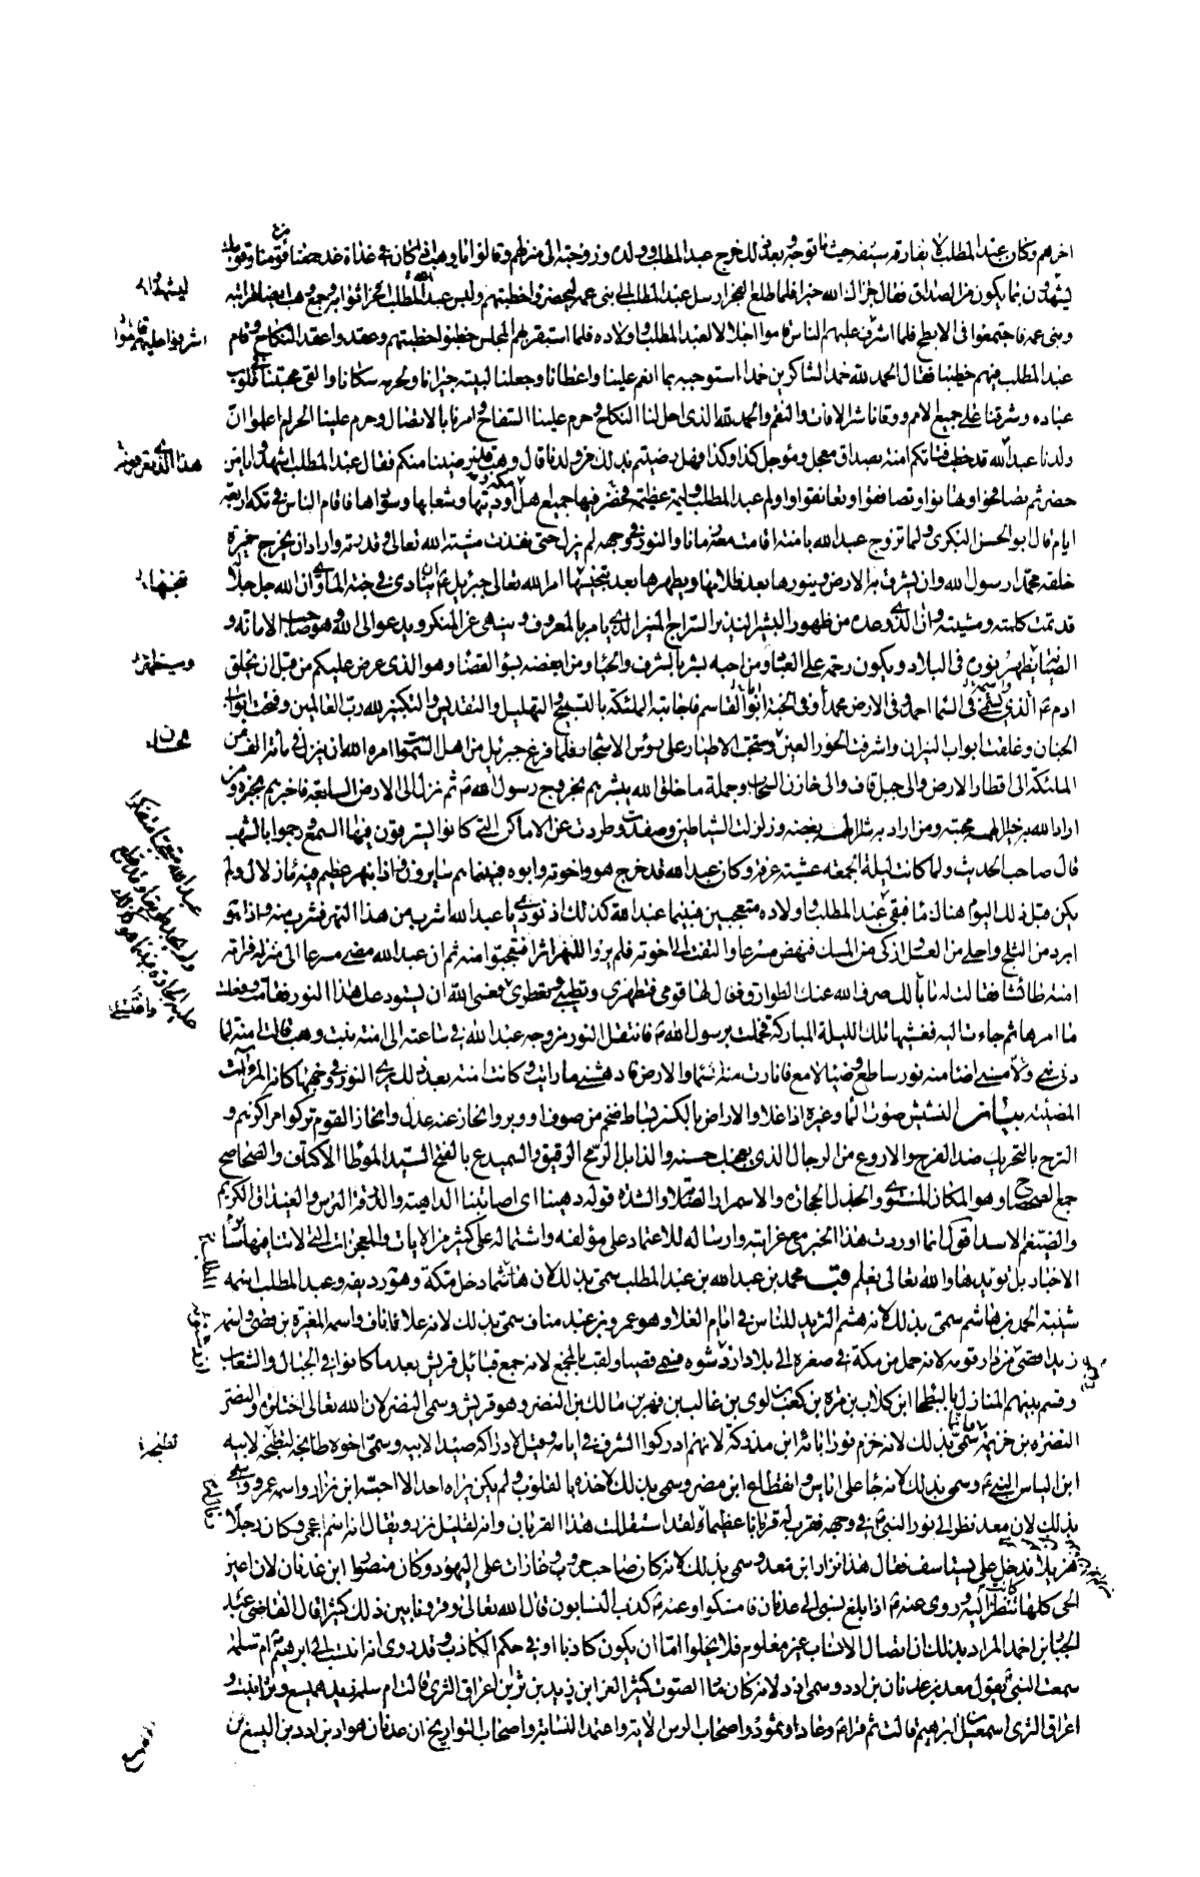 اخرهم وكان عبد المطلب لا يفارقه سيفه حيث ما توجه بعد ذلك خرج عبد المطلب وولده وزوجته الى منزلهم وقالوا انا يا وهب اذا كان غداة غد جمعنا قومنا وقومك
ليشهدون بما يكون من الصداق فقال جزاك الله خيرا فلما طلع الفجر ارسل عبد المطلب الى بنى عمه ليحضروا خطبتهم ولبس عبد المطلب افخر اثوابه وجمع وهب ايضا قرابته
وبنى عمه فاجتمعوا فى الابطح فلما اشرف عليهم الناس قاموا اجلالا لعبد المطلب واولاده فلما استقر بهم المجلس خطبوا خطبتهم وعقدوا عقد النكاح وقام
عبد المطلب فيهم خطيبا فقال الحمد لله حمد الشاكرين حمدا استوجبه بما انعم علينا واعطانا وجعلنا لبيته جيرانا ولحرمه سكانا والقى محبتنا فى قلوب
عباده وشرفنا على جميع الامم ووقانا شر الافات والنقم والحمد لله الذى احل لنا النكاح وحرم علينا السفاح وامرنا بالاتصال وحرم علينا الحرام اعلموا ان
ولدنا عبد الله قد خطب فتاتكم امنة بصداق معجل ومؤجل كذا وكذا فهل رضيتم بذلك من ولدنا قال وهب قد رضينا منكم فقال عبد المطلب اشهدوا يا من
حضر ثم تصافحوا وتهانوا وتصافقوا وتعانقوا واولم عبد المطلب وليمة عظيمة فحضر فيها جميع اهل مكة واوديتها وشعابها وسوادها فاقام الناس فى مكة اربعة
ايام قال ابو الحسن البكرى ولما تزوج عبد الله بامنة اقامت معه زمانا والنور فى وجهه لم يزل حتى نفذت مشية الله تعالى وقدرته واراد ان يخرج خيرة
خلقه محمدا رسول الله وان يشرف به الارض وينورها بعد ظلامها ويطهرها بعد تنجيسها امر الله تعالى جبرئيل ان ينادى فى جنة الماوى ان الله جل جلاله
قد تمت كلمته ومشيته وان الذى وعده من ظهور البشير النذير السراج المنير الذى يامر بالمعروف وينهى عن المنكر ويدعو الى الله وهو صاحب الامانة و
الصيانة يظهر نوره فى البلاد ويكون رحمة على العباد ومن احبه بشر بالشرف والحباء ومن ابغضه بسوء القضاء وهو الذى عرض عليكم من قبل ان يخلق
ادم الذى يسمى فى السماء احمد وفى الارض محمدا وفى الجنة ابو القاسم فاجابته الملئكة بالتسبيح والتهليل والتقديس والتكبير لله رب العالمين وفتحت ابواب
الجنان وغلقت ابواب النيران واشرفت الحور العين وسبحت الاطيار على رؤس الاشجار فلما فرغ جبرئيل من اهل السموات امره الله ان ينزل فى مائة الف من
الملئكة الى اقطار الارض والى جبل قاف والى خازن السحاب وجملة ما خلق الله يبشرهم بخروج رسول الله ثم نزل الى الارض السابعة فاخبرهم بخبره ومن
اراد الله به خيرا الهمه محبته ومن اراد به شرا الهمه بغضه وزلزلت الشياطين وصفدت وطردت عن الاماكن التى كانوا يسترقون فيها السمع ورجموا بالشهب
قال صاحب الحديث ولما كانت ليلة الجمعة عشية عرفة وكان عبد الله قد خرج هو واخوته وابوه فبينما هم سايرون فاذا بنهر عظيم فيه ماء زلال ولم
يكن قبل ذلك اليوم هناك ماء فبقى عبد المطلب واولاده متعجبين فبينما عبد الله كذلك اذ نودى يا عبد الله اشرب من هذا النهر فشرب منه واذا هو
ابرد من الثلج واحلى من العسل وازكى من المسك فنهض مسرعا والتفت الى اخوته فلم يروا للنهر اثرا فتعجبوا منه ثم ان عبد الله مضى مسرعا الى منزله فراته
امنة طائشا فقالت له ما بالك صرف الله عنك الطوارق فقال لها قومى فتطهرى وتطيبى وتعطرى فعسى الله ان يستودعك هذا النور فقامت وفعلت
ما امرها ثم جاءت اليه فغشيها تلك الليلة المباركة فحملت برسول الله فانتقل النور من وجه عبد الله فى ساعته الى امنة بنت وهب قالت امنة لما
دنى منى ولامسنى اضاء منه نور ساطع وضياء لامع فانارت منه السماء والارض فادهشنى ما رايت وكانت امنة بعد ذلك يرى النور فى وجهها كانه المراة
المضيئة بيان النشيش صوت الماء وغيره اذا غلا والاراض بالكسر بساط ضخم من صوف او وبر وانحاز عنه عدل وانحاز القوم تركوا مراكزهم و
الترح بالتحريك ضد الفرح والاروع من الرجال الذى يعجبك حسنه والذابل الرمح الرقيق والسميدع بالفتح السيد الموطأ الاكناف والصحاصح
جمع الصحصاح وهو المكان المستوى والجندل الحجارة والاسمرار الصلابة والشدة قوله دهينا اى اصابتنا الداهية والدرقة الترس والغيداق الكريم
والضيغم الاسد اقول انما اوردت هذا الخبر مع غرابته وارساله للاعتماد على مؤلفه واشتماله على كثير من الايات والمعجزات التى لا تنافيها سائر
الاخبار بل تؤيدها والله تعالى يعلم قب محمد بن عبد الله بن عبد المطلب سمى بذلك لان هاشما دخل مكة وهو رديفه وعبد المطلب اسمه
شيبة الحمد بن هاشم سمى بذلك لانه هشم الثريد للناس فى ايام الغلا وهو عمرو بن عبد مناف سمى بذلك لانه علا واناف واسمه المغيرة بن قصى واسمه
زيد اقصى من دار قومه لانه حمل من مكة فى صغره الى بلاد ازد شنوة فسمى قصيا ولقب بالمجمع لانه جمع قبائل قريش بعد ما كانوا فى الجبال والشعاب
وقسم بينهم المنازل بالبطحا ابن كلاب بن مرة بن كعب بن لوى بن غالب بن فهر بن مالك بن النضر وهو قريش وسمى النضر لان الله تعالى اختاره والنضر
النضرة بن خزيمة سمى بذلك لانه خزم نور ابائه ابن مدركة لانهم ادركوا الشرف فى ايامه وقيل لادراكه صيدا لابيه وسمى اخوه طابخة لطبخه لابيه
ابن الياس النبى وسمى بذلك لانه جا على اياس وانقطاع ابن مضر وسمى بذلك لاخذه بالقلوب ولم يكن يراه احد الا احبه ابن نزار واسمه عمرو وسمى
بذلك لان معد نظر الى نور النبى فى وجهه فقرب له قربانا عظيما وقال لقد استقللت هذا القربان وانه لقليل نزر ويقال انه اسم اعجمى وكان رجلا
هزيلا فدخل على يستاسف فقال هذا نزار ابن معد وسمى بذلك لانه كان صاحب حروب وغارات على اليهود وكان منصورا ابن عدنان لان اعين
الحى كلها كانت تنظر اليه وروى عنه اذا بلغ نسبى الى عدنان فامسكوا وعنه كذب النسابون قال الله تعالى وقرونا بين ذلك كثيرا قال القاضى عبد
الجبار بن احمد المراد بذلك ان اتصال الانساب غير معلوم فلا يخلوا اما ان يكون كاذبا او فى حكم الكاذب وقد روى انه انتسب الى ابرهيم ام سلمة
سمعت النبى يقول معد بن عدنان بن ادد وسمى ادد لانه كان ماد الصوت كثير العز ابن زيد بن ثرى بن اعراق الثرى قالت ام سلمة زيد هميسع وثرى نبت و
اعراق الثرى اسمعيل بن ابرهيم قالت ثم قرأ وعادا وثمود واصحاب الرس الاية واعتمد النسابة واصحاب التواريخ ان عدنان هو ادد بن ادد بن اليسع بن